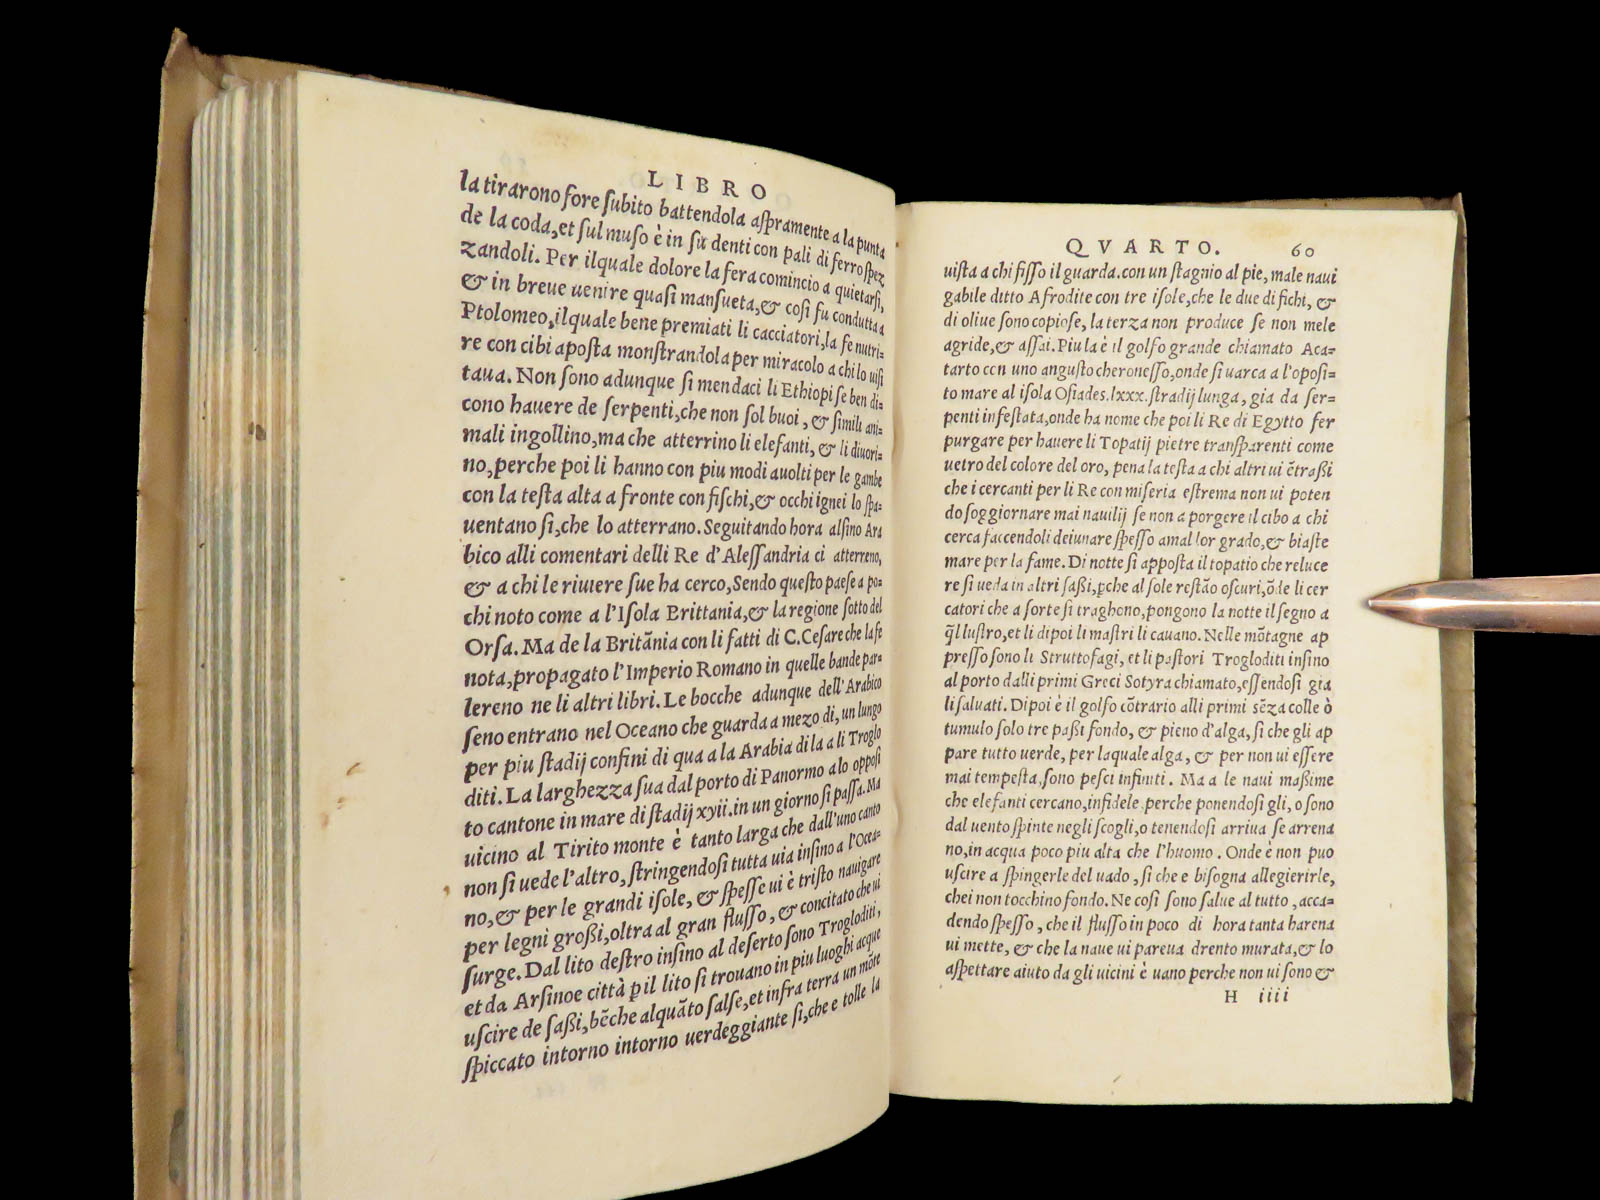 LIBRO
la tirarono fore ſubito battendola aſpramente a la punta
de la coda,et ſul muſo è in ſu denti con pali di ferro ſpez
zandoli. Per ilquale dolore la fera comincio a quietarſi,
& in breue uenire quaſi manſueta,& coſi fu condutta a
Ptolomeo,ilquale bene premiati li cacciatori,la fe nutri=
re con cibi apoſta monſtrandola per miracolo a chi lo uiſi
taua. Non ſono adunque ſi mendaci li Ethiopi ſe ben di=
cono hauere de ſerpenti,che non ſol buoi, & ſimili ani=
mali ingollino,ma che atterrino li elefanti, & li diuori=
no,perche poi li hanno con piu modi auolti per le gambe
con la teſta alta a fronte con fiſchi,& occhi ignei lo ſpa=
uentano ſi,che lo atterrano. Seguitando hora alſino Ara
bico alli comentari delli Re d'Aleſſandria ci atterreno,
& a chi le riuiere ſue ha cerco,Sendo queſto paeſe a po=
chi noto come a l'Iſola Brittania,& la regione ſotto del
Orſa. Ma de la Britãnia con li fatti di C.Ceſare che la fe
nota,propagato l'Imperio Romano in quelle bande par=
lereno ne li altri libri. Le bocche adunque dell'Arabico
ſeno entrano nel Oceano che guarda a mezo di, un lungo
per piu ſtadij confini di qua a la Arabia di la a li Troglo
diti. La larghezza ſua dal porto di Panormo a lo oppoſi
to cantone in mare di ſtadij xyii.in un giorno ſi paſſa. Ma
uicino al Tirito monte è tanto larga che dall'uno canto
non ſi uede l'altro, ſtringendoſi tutta uia inſino a l'Ocea=
no,& per le grandi iſole, & ſpeſſe ui è triſto nauigare
per legni groſſi,oltra al gran fluſſo, & concitato che ui
ſurge. Dal lito deſtro inſino al deſerto ſono Trogloditi,
et da Arſinoe città ꝑ il lito ſi trouano in piu luoghi acque
uſcire de ſaſſi, bẽche alquãto ſalſe, et infra terra un mõte
ſpiccato intorno intorno uerdeggiante ſi,che e tolle la
QVARTO. 60
uiſta a chi fiſſo il guarda.con un ſtagnio al pie, male naui
gabile ditto Afrodite con tre iſole,che le due di fichi, &
di oliue ſono copioſe, la terza non produce ſe non mele
agride,& aſſai. Piu la è il golfo grande chiamato Aca=
tarto con uno anguſto cheroneſſo,onde ſi uarca a l'opoſi=
to mare al iſola Oſiades.lxxx.ſtradij lunga, gia da ſer=
penti infeſtata,onde ha nome che poi li Re di Egytto fer
purgare per hauere li Topatij pietre tranſparenti come
uetro del colore del oro, pena la teſta a chi altri ui ẽtraſſi
che i cercanti per li Re con miſeria eſtrema non ui poten
do ſoggiornare mai nauilij ſe non a porgere il cibo a chi
cerca faccendoli deiunare ſpeſſo amal lor grado,& biaſte
mare per la fame. Di notte ſi appoſta il topatio che reluce
re ſi ueda in altri ſaſſi, ꝑche al ſole reſtão oſcuri,õde li cer
catori che a ſorte ſi traghono, pongono la notte il ſegno a
q̃l luſtro,et li dipoi li maſtri li cauano. Nelle mõtagne ap
preſſo ſono li Struttofagi, et li paſtori Trogloditi inſino
al porto dalli primi Greci Sotyra chiamato, eſſendoſi gia
li ſaluati. Dipoi è il golfo cõtrario alli primi sẽza colle ò
tumulo ſolo tre paſſi fondo, & pieno d'alga, ſi che gli ap
pare tutto uerde, per laquale alga, & per non ui eſſere
mai tempeſta, ſono peſci infiniti. Ma a le naui maſſime
che elefanti cercano,infidele perche ponendoſi gli, o ſono
dal uento ſpinte negli ſcogli,o tenendoſi arriua ſe arrena
no,in acqua poco piu alta che l'huomo. Onde è non puo
uſcire a ſpingerle del uado, ſi che e biſogna allegierirle,
chei non tocchino fondo. Ne coſi ſono ſalue al tutto, acca=
dendo ſpeſſo, che il fluſſo in poco di hora tanta harena
ui mette, & che la naue ui pareua drento murata,& lo
aſpettare aiuto da gli uicini è uano perche non ui ſono &
H iiii